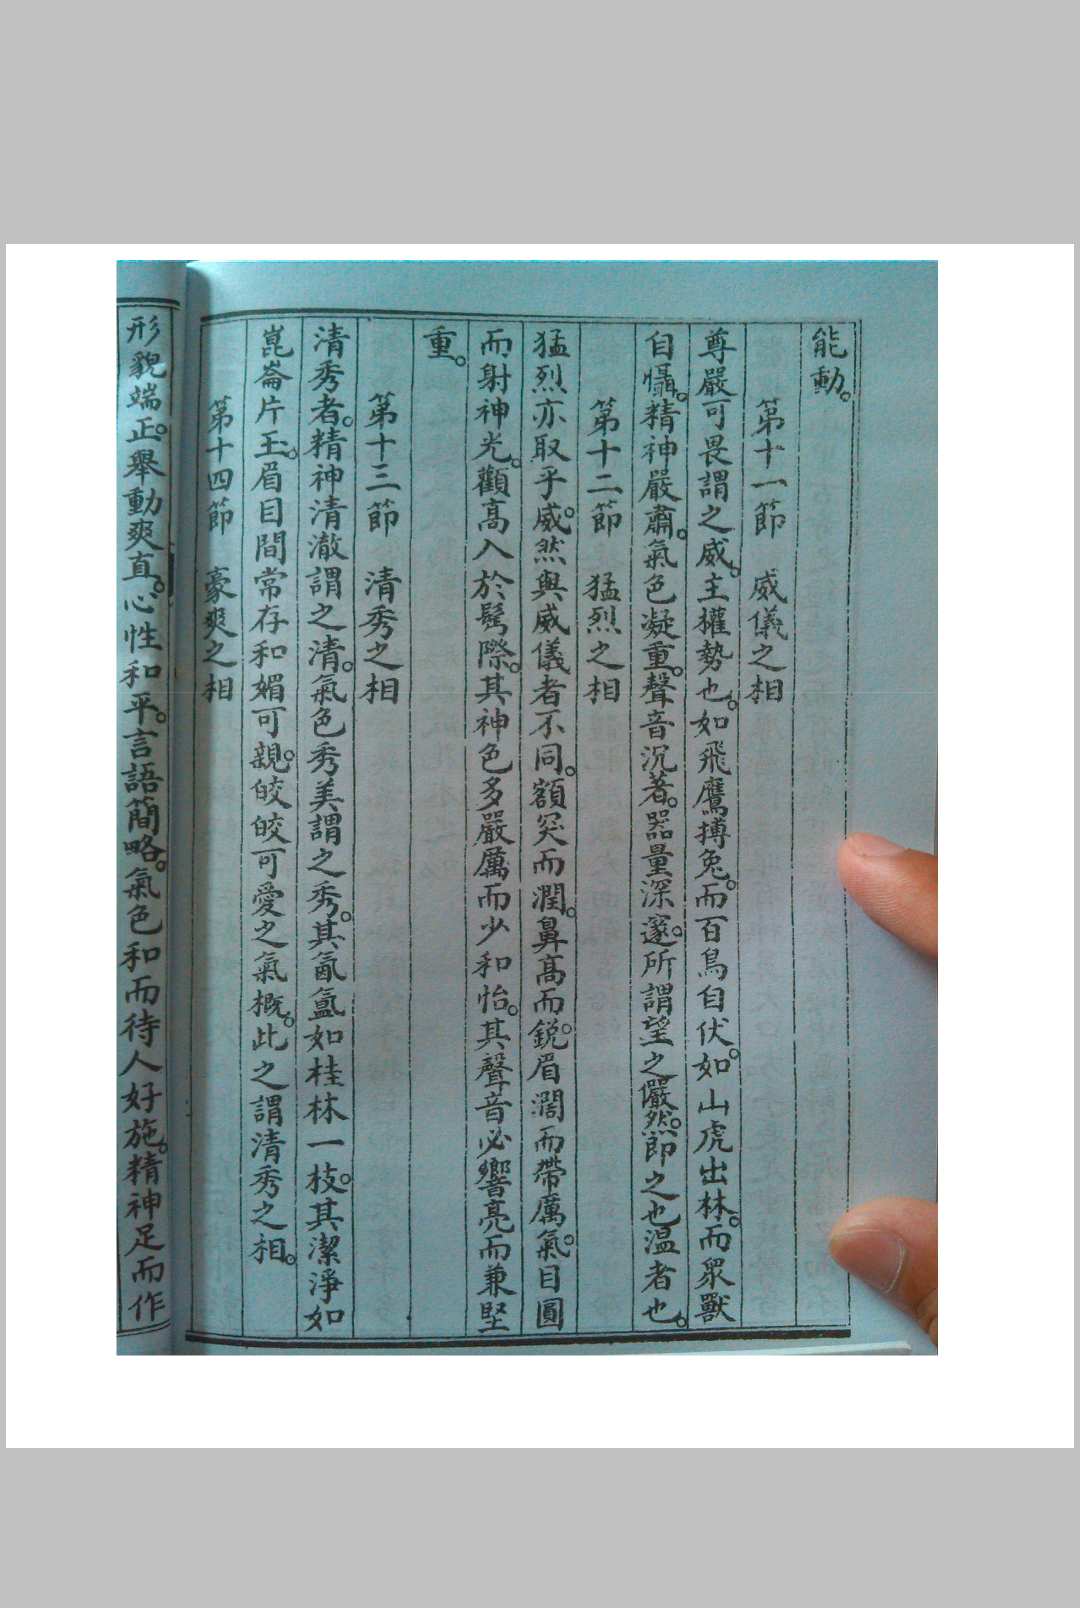 能動。
第十一節　威儀之相
尊嚴可畏謂之威。主權勢也。如飛鷹搏兔。而百鳥自伏。如山虎出林。而眾獸
自懾。精神嚴肅。氣色凝重。聲音沉著。器量深邃。所謂望之儼然。即之也溫者也。
第十二節　猛烈之相
猛烈亦取乎威。然與威儀者不同。額突而潤。鼻高而銳。眉濶而帶厲氣。目圓
而射神光。顴高入於髩際。其神色多嚴厲而少和怡。其聲音必響亮而兼堅
重。
第十三節　清秀之相
清秀者。精神清澈謂之清。氣色秀美謂之秀。其氤氳如桂林一枝。其潔淨如
崑崙片玉。眉目間常存和媚可親。皎皎可愛之氣概。此之謂清秀之相。
第十四節　豪爽之相
形貌端正。舉動爽直。心性和平。言語簡略。氣色和而待人好施。精神足而作